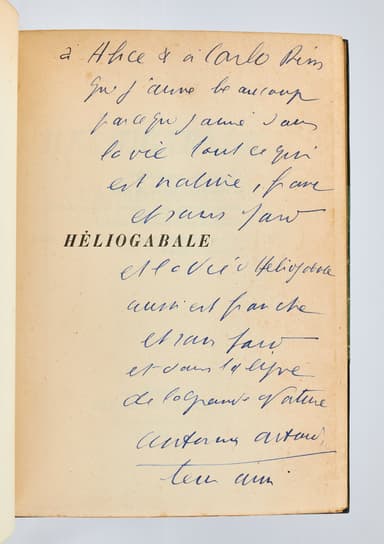 à Alice & à Carlo Rim
que j'aime beaucoup
parce que j'aime dans
la vie tout ce qui
est nature, franc
et sans fard
HÈLIOGABALE
et la vie d'Héliogabale
aussi est franche
et sans fard
et dans la ligne
de la grande Nature
antonin artaud
leur ami